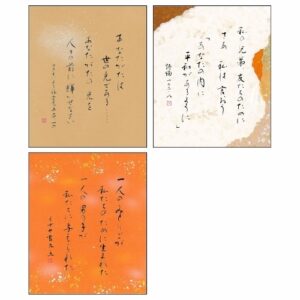 あなたがたは
世の光である……
あなたがたの光を
人々の前に輝かせなさい
私の兄弟 友たちのために
さあ 私は言おう
「あなたの内に
平和があるように」
詩編
一人のみどりごが
私たちのために生まれた
一人の男の子が
私たちに与えられた
イザヤ書九